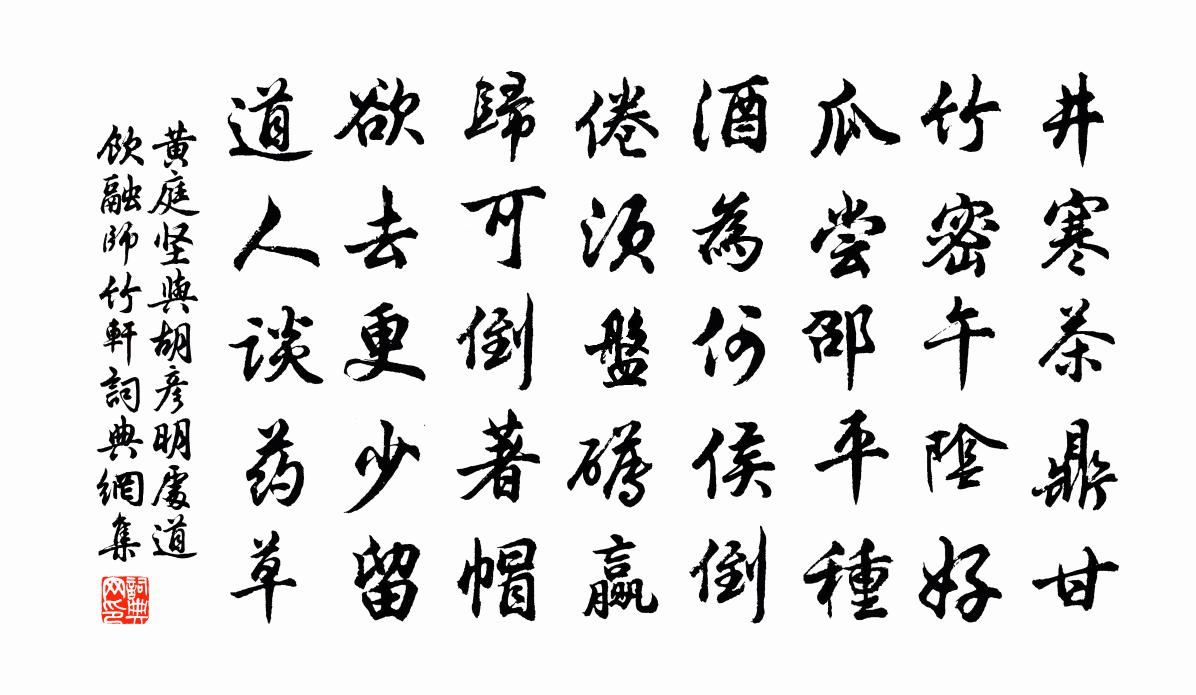 井寒茶鼎甘
竹密午陰好
瓜尝邵平種
酒為何侯倒
倦須盤礴羸
歸可倒著帽
欲去更少留
道人談药草
黄庭坚與胡彦明處道
飲融師竹軒詞典網集
詞典
网印